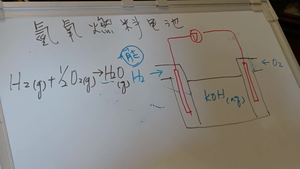 氫氧燃料電池
H₂(g)+½O₂(g)→H₂O(g)
H₂→
←O₂
KOH(aq)